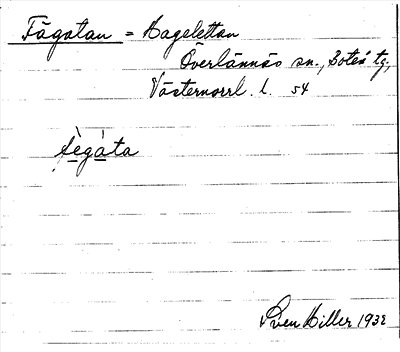 Fågatan = Hagelettan
Överlännäs sn., Boteå tg,
Västernorrl. l. 54
fègáta
Sven Hiller 1932